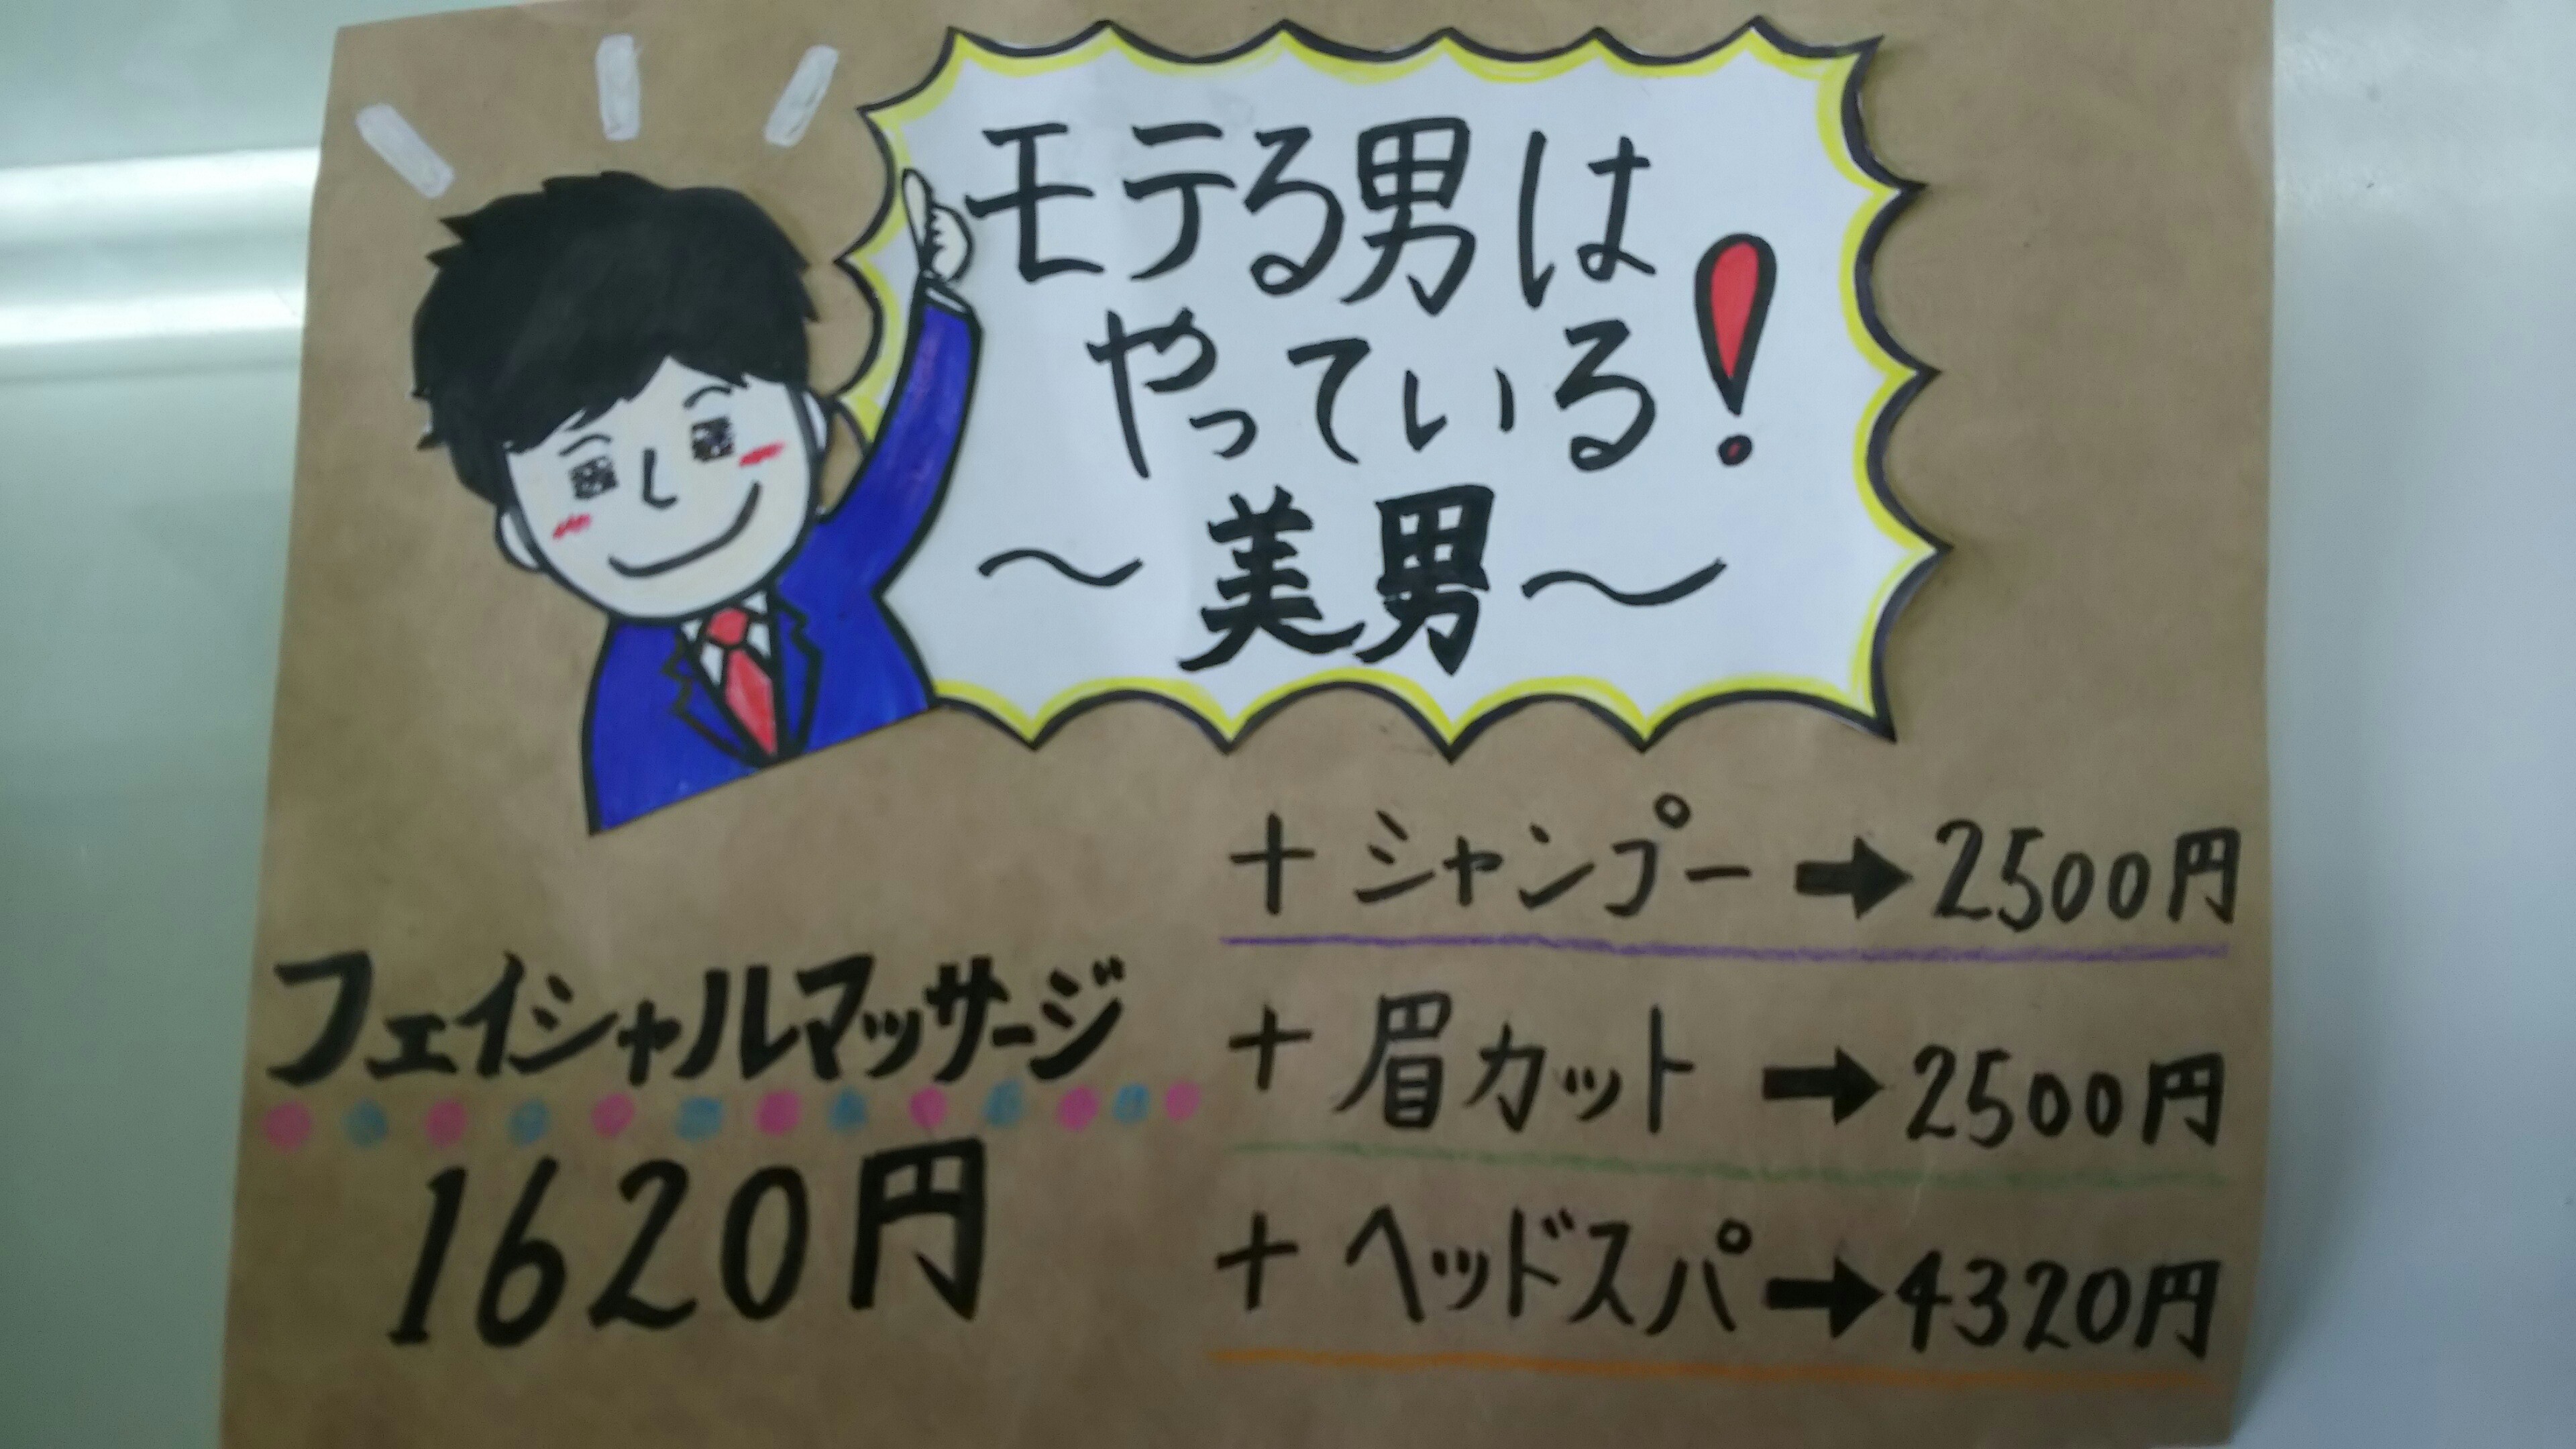 モテる男は
やっている!
〜美男〜
フェイシャルマッサージ
1620円
+シャンプー➡2500円
+眉カット➡2500円
+ヘッドスパ➡4320円